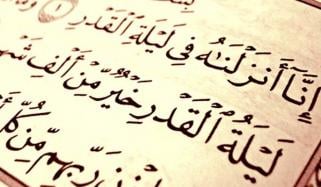 إِنَّآ أَنزَلْنَٰهُ فِى لَيْلَةِ ٱلْقَدْرِ ١ وَمَا
لَيْلَةُ ٱلْقَدْرِ خَيْرٌ مِّنْ أَلْفِ شَهْ
رَبِّهِم مِّن كُلِّ